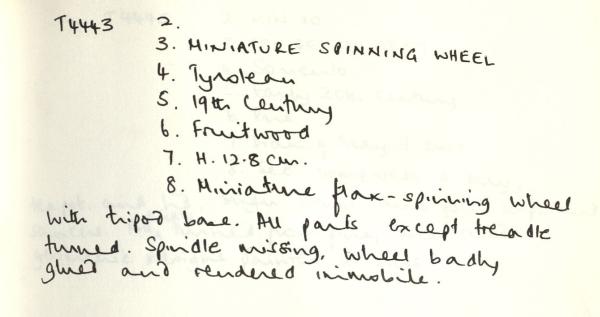 T4443 2.
3. MINIATURE SPINNING WHEEL
4. Tyrolean
5. 19th Century
6. Fruitwood
7. H. 12.8 cm.
8. Miniature flax-spinning wheel
with tripod base. All parts except treadle
turned. Spindle missing, wheel badly
glued and rendered immobile.